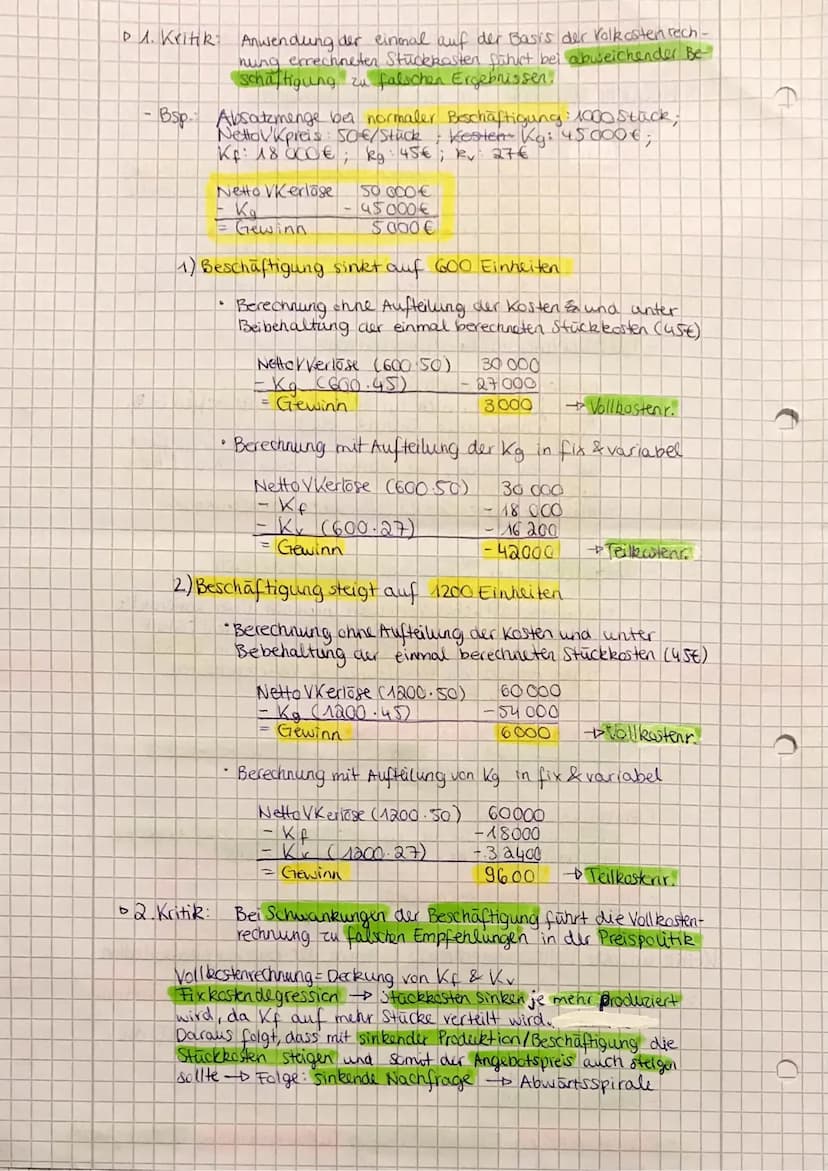 ▷ 1. Kritik: Anwendung der einmal auf der Basis der Volkostenrech-
nung errechneten Stückkosten führt bei abweichender Be-
schäftigung zu falschen Ergebnissen.
- Bsp.: Absatzmenge bei normaler Beschäftigung: 1000 Stück;
NettoVKpreis: 50€/Stück ; Kosten Kg: 45 000€;
Kf: 18 000€ ; kg: 45€ ; kv: 27€
Netto VKerlöse 50 000€
- Kg - 45 000€
= Gewinn 5 000€
1) Beschäftigung sinkt auf 600 Einheiten
• Berechnung ohne Aufteilung der Kosten & und unter
Beibehaltung der einmal berechneten Stückkosten (45€)
NettoVKerlöse (600·50) 30 000
- Kg (600·45) - 27 000
= Gewinn 3000 → Vollkostenr.
• Berechnung mit Aufteilung der Kg in fix & variabel
NettoVKerlöse (600·50) 30 000
- Kf - 18 000
- Kv (600·27) - 16 200
= Gewinn - 42000 → Teilkostenr.
2) Beschäftigung steigt auf 1200 Einheiten
• Berechnung ohne Aufteilung der Kosten und unter
Bebehaltung der einmal berechneten Stückkosten (45€)
Netto VKerlöse (1200·50) 60 000
- Kg (1200·45) - 54 000
= Gewinn 6000 → Vollkostenr.
• Berechnung mit Aufteilung von Kg in fix & variabel
NettoVKerlöse (1200·50) 60000
- Kf - 18000
- Kv (1200·27) - 32400
= Gewinn 9600 → Teilkostenr.
▷ 2. Kritik: Bei Schwankungen der Beschäftigung führt die Vollkosten-
rechnung zu falschen Empfehlungen in der Preispolitik
Vollkostenrechnung = Deckung von Kf & Kv
Fixkostendegression → Stückkosten sinken je mehr produziert
wird, da Kf auf mehr Stücke verteilt wird.
Daraus folgt, dass mit sinkender Produktion/Beschäftigung die
Stückkosten steigen und somit der Angebotspreis auch steigen
sollte → Folge: sinkende Nachfrage → Abwärtsspirale